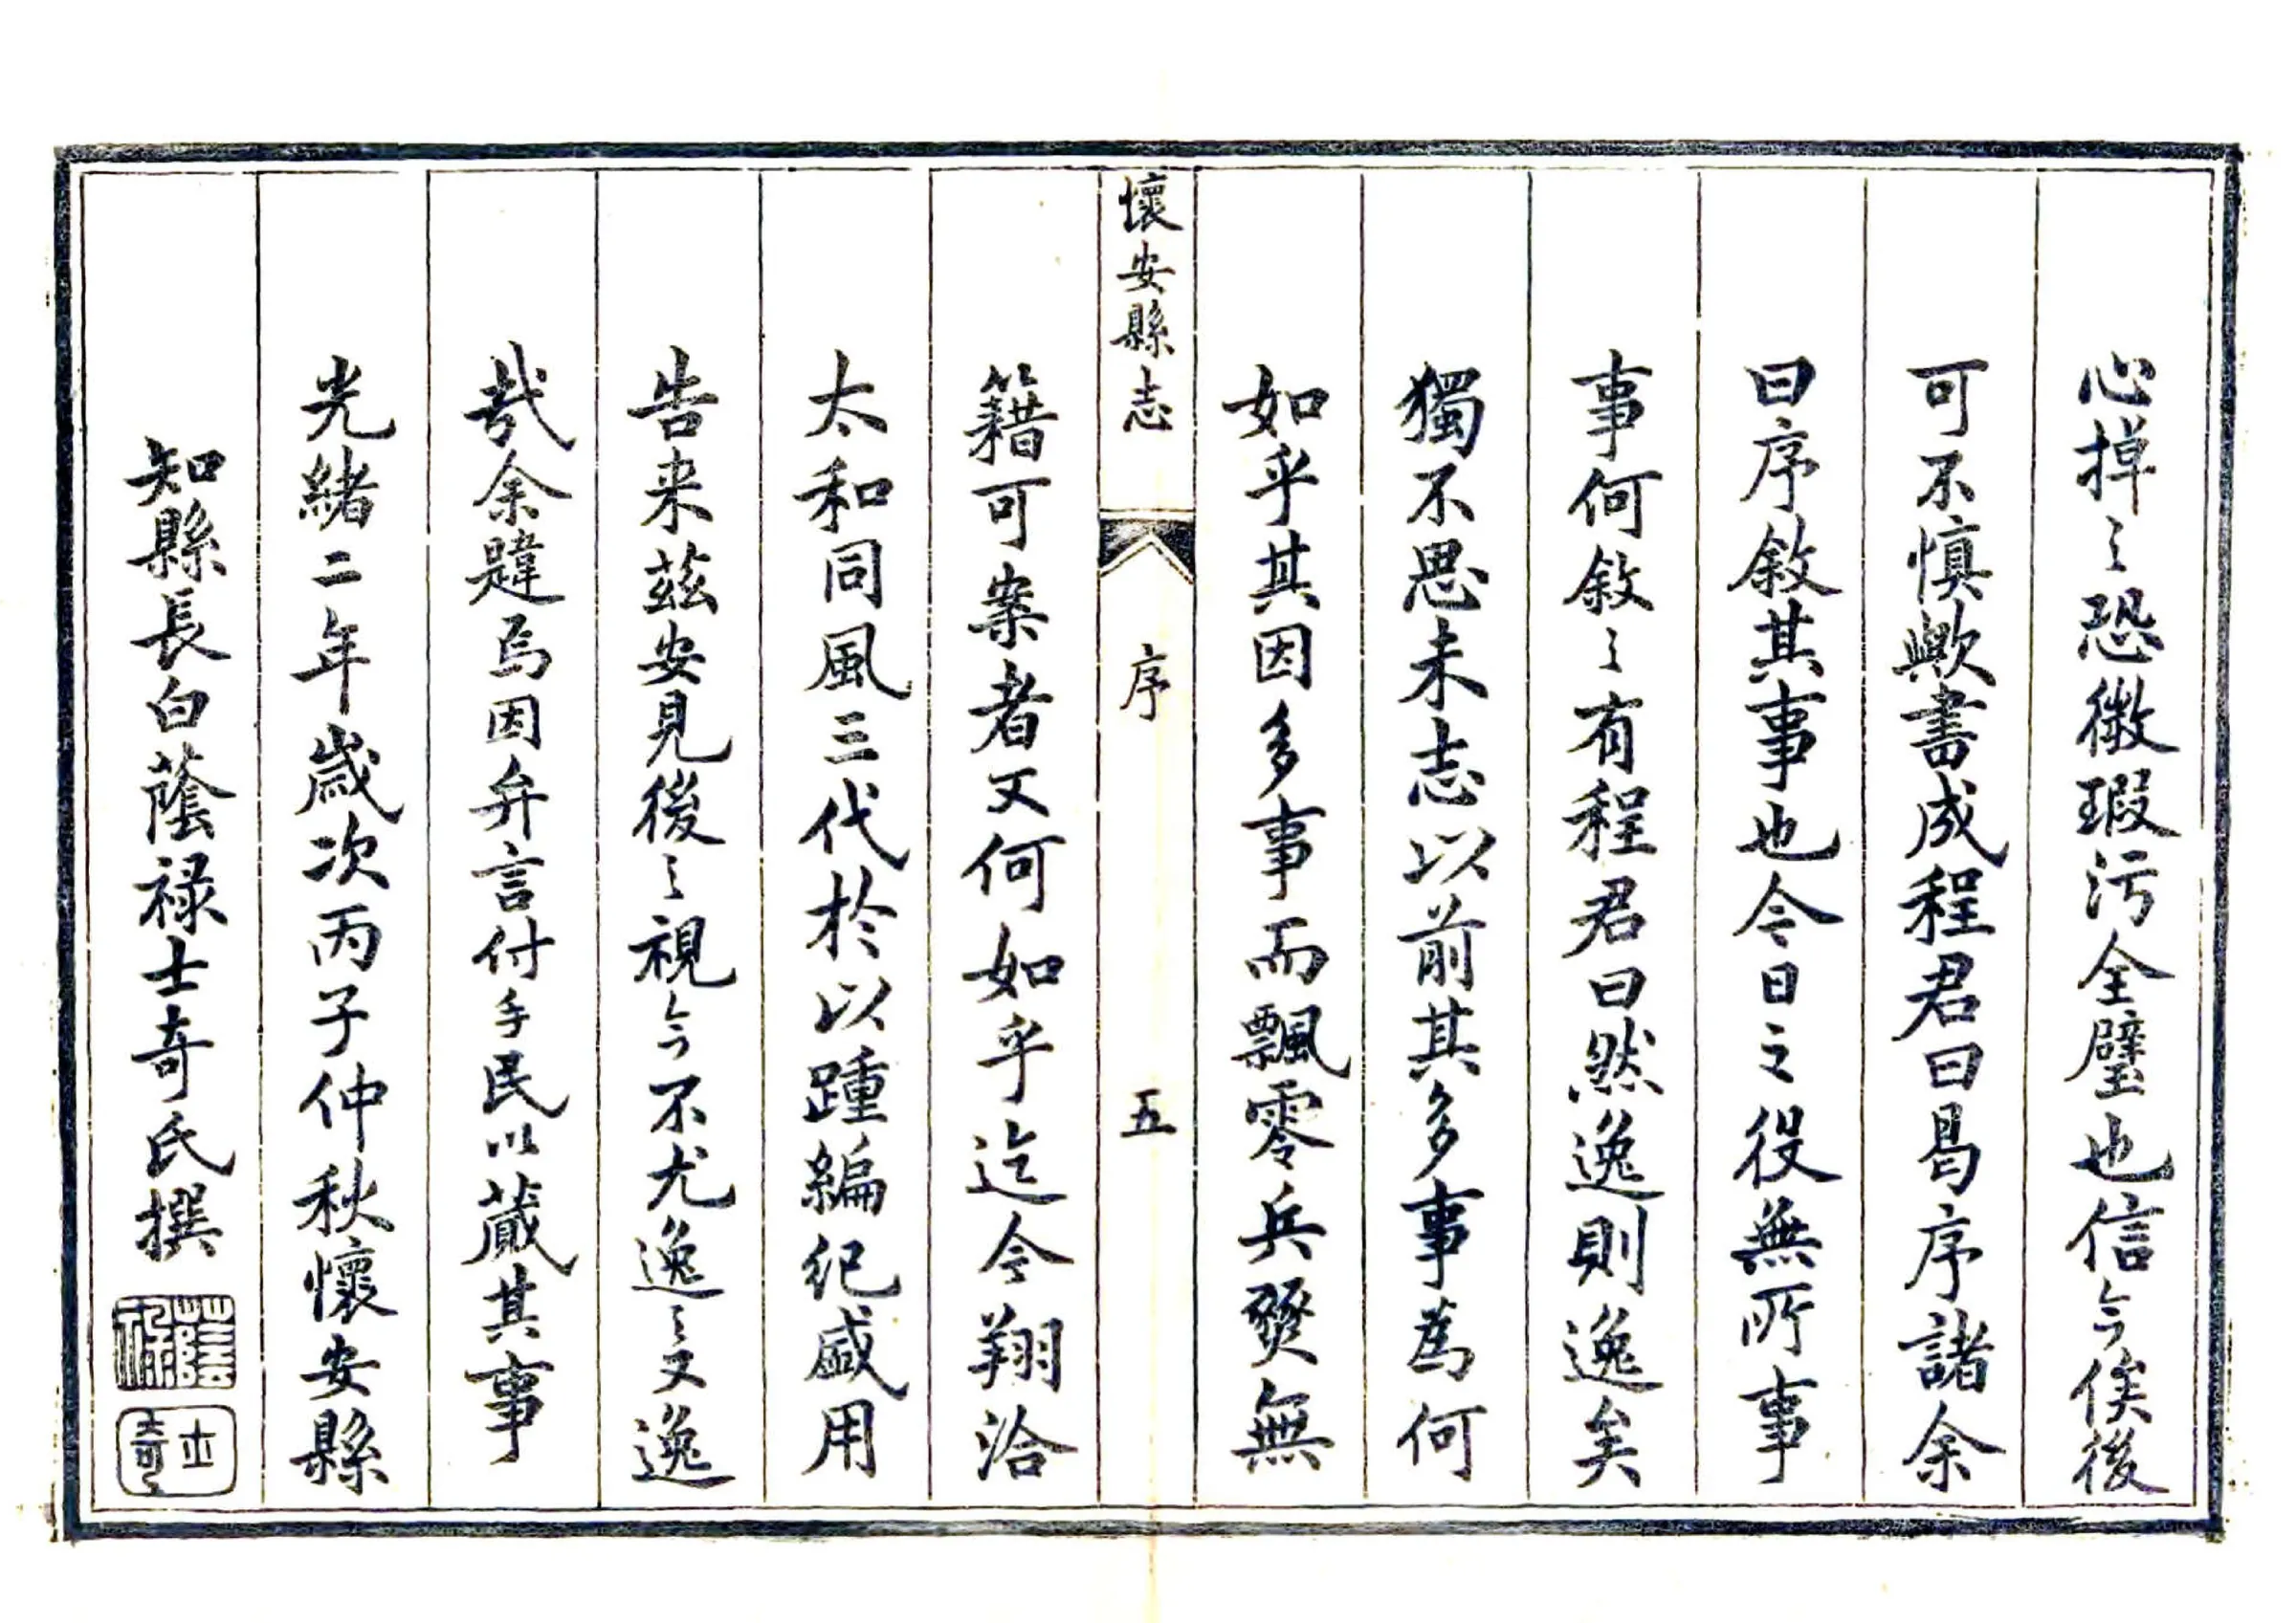 心掉〻恐微瑕污全璧也信今俟後
可不慎歟書成程君曰曷序諸余
曰序敘其事也今日之役無所事
事何敘〻有程君曰然逸則逸矣
獨不思未志以前其多事為何
如乎其因多事而飄零兵燹無
懷安縣志 序 五
籍可案者又何如乎迄今翔洽
太和同風三代於以踵編紀盛用
告来茲安見後之視今不尤逸〻又逸
哉余韙焉因弁言付手民以蕆其事
光緒二年歲次丙子仲秋懷安縣
知縣長白蔭祿士奇氏撰
蔭祿
士奇